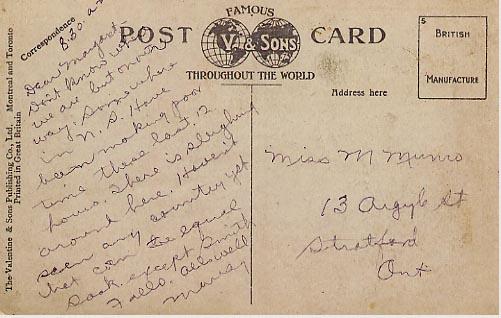 FAMOUS
POST CARD
V. & SONS
THROUGHOUT THE WORLD
S
BRITISH
MANUFACTURE
Correspondence
Address here
The Valentine & Sons Publishing Co., Ltd. Montreal and Toronto
Printed in Great Britain
8.30 a
Dear Margaret
Don't know where
we are but on our
way. Somewhere
in N. S. Have
been making poor
time these last 12
hours. There is sleighing
around here. Haven't
seen any country yet
that can equal
Sask. except Smith
Falls. All's well
Miss M Munro
13 Argyle St
Stratford
Ont